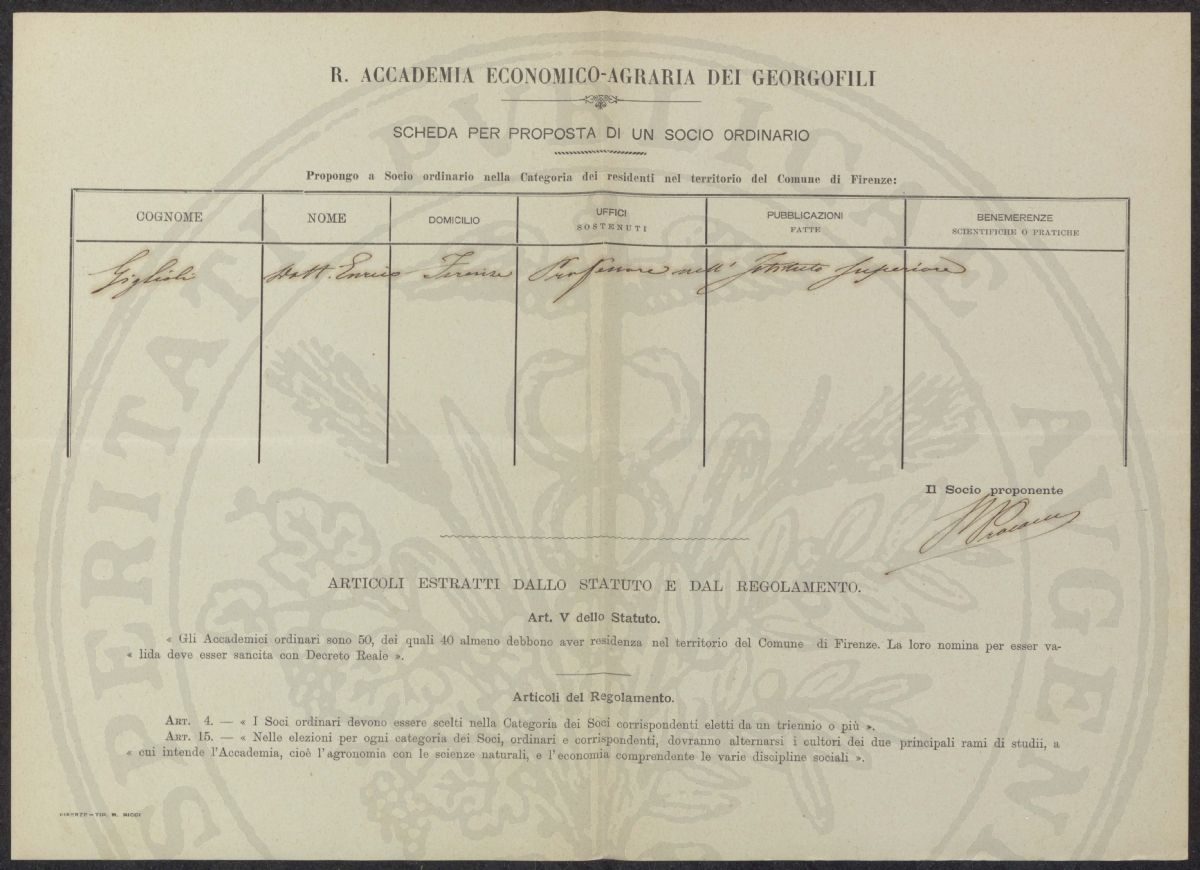 R. ACCADEMIA ECONOMICO-AGRARIA DEI GEORGOFILI
SCHEDA PER PROPOSTA DI UN SOCIO ORDINARIO
Propongo a Socio ordinario nella Categoria dei residenti nel territorio del Comune di Firenze:
COGNOME NOME DOMICILIO UFFICI SOSTENUTI PUBBLICAZIONI FATTE BENEMERENZE SCIENTIFICHE O PRATICHE
Giglioli Dott. Enrico Firenze Professore nell' Istituto Superiore
Il Socio proponente
ARTICOLI ESTRATTI DALLO STATUTO E DAL REGOLAMENTO.
Art. V dello Statuto.
« Gli Accademici ordinari sono 50, dei quali 40 almeno debbono aver residenza nel territorio del Comune di Firenze. La loro nomina per esser va-
« lida deve esser sancita con Decreto Reale ».
Articoli del Regolamento.
ART. 4. — « I Soci ordinari devono essere scelti nella Categoria dei Soci corrispondenti eletti da un triennio o più ».
ART. 15. — « Nelle elezioni per ogni categoria dei Soci, ordinari e corrispondenti, dovranno alternarsi i cultori dei due principali rami di studii, a
« cui intende l'Accademia, cioè l'agronomia con le scienze naturali, e l'economia comprendente le varie discipline sociali ».
FIRENZE — TIP. M. RICCI
PROSPERITATI PVBLICAE AVGENDAE